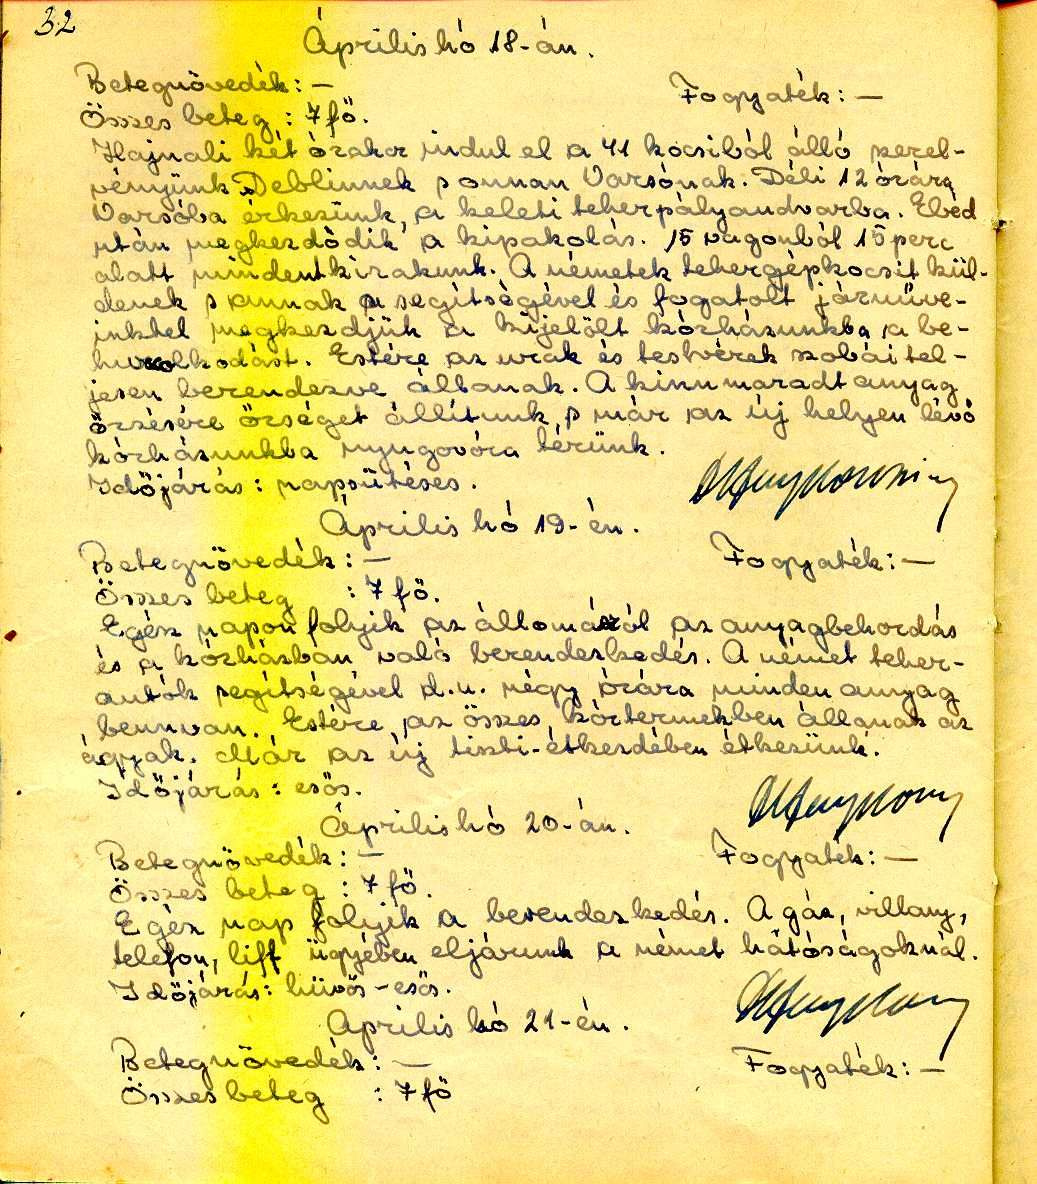 32
Április hó 18-án.
Betegnövedék: — Fogyaték: —
Összes beteg : 7 fő.
Hajnali két órakor indul el a 41 kocsiból álló szerel-
vényünk Deblinnek s onnan Varsónak. Déli 12 órára
Varsóba érkezünk, a keleti teherpályaudvarba. Ebéd
után megkezdődik a kipakolás. 15 vagonból 15 perc
alatt mindent kirakunk. A németek tehergépkocsit kül-
denek s annak a segítségével és fogatolt járműve-
inkkel megkezdjük a kijelölt kórházunkba a be-
hurcolkodást. Estére az urak és testvérek szobái tel-
jesen berendezve állanak. A kinnmaradt anyag
őrzésére őrséget állítunk s már az új helyen lévő
kórházunkba nyugovóra térünk.
Időjárás: napsütéses.
Április hó 19-én.
Betegnövedék: — Fogyaték: —
Összes beteg : 7 fő.
Egész napon folyik az állomásról az anyagbehordás
és a kórházban való berendezkedés. A német teher-
autók segítségével d.u. négy órára minden anyag
bennvan. Estére az összes kórtermekben állanak az
ágyak. Már az új tiszti-étkezdében étkezünk.
Időjárás: esős.
Április hó 20-án.
Betegnövedék: — Fogyaték: —
Összes beteg : 7 fő.
Egész nap folyik a berendezkedés. A gáz, villany,
telefon, lift ügyében eljárunk a német hatóságoknál.
Időjárás: hűvös-esős.
Április hó 21-én.
Betegnövedék: — Fogyaték: —
Összes beteg : 7 fő